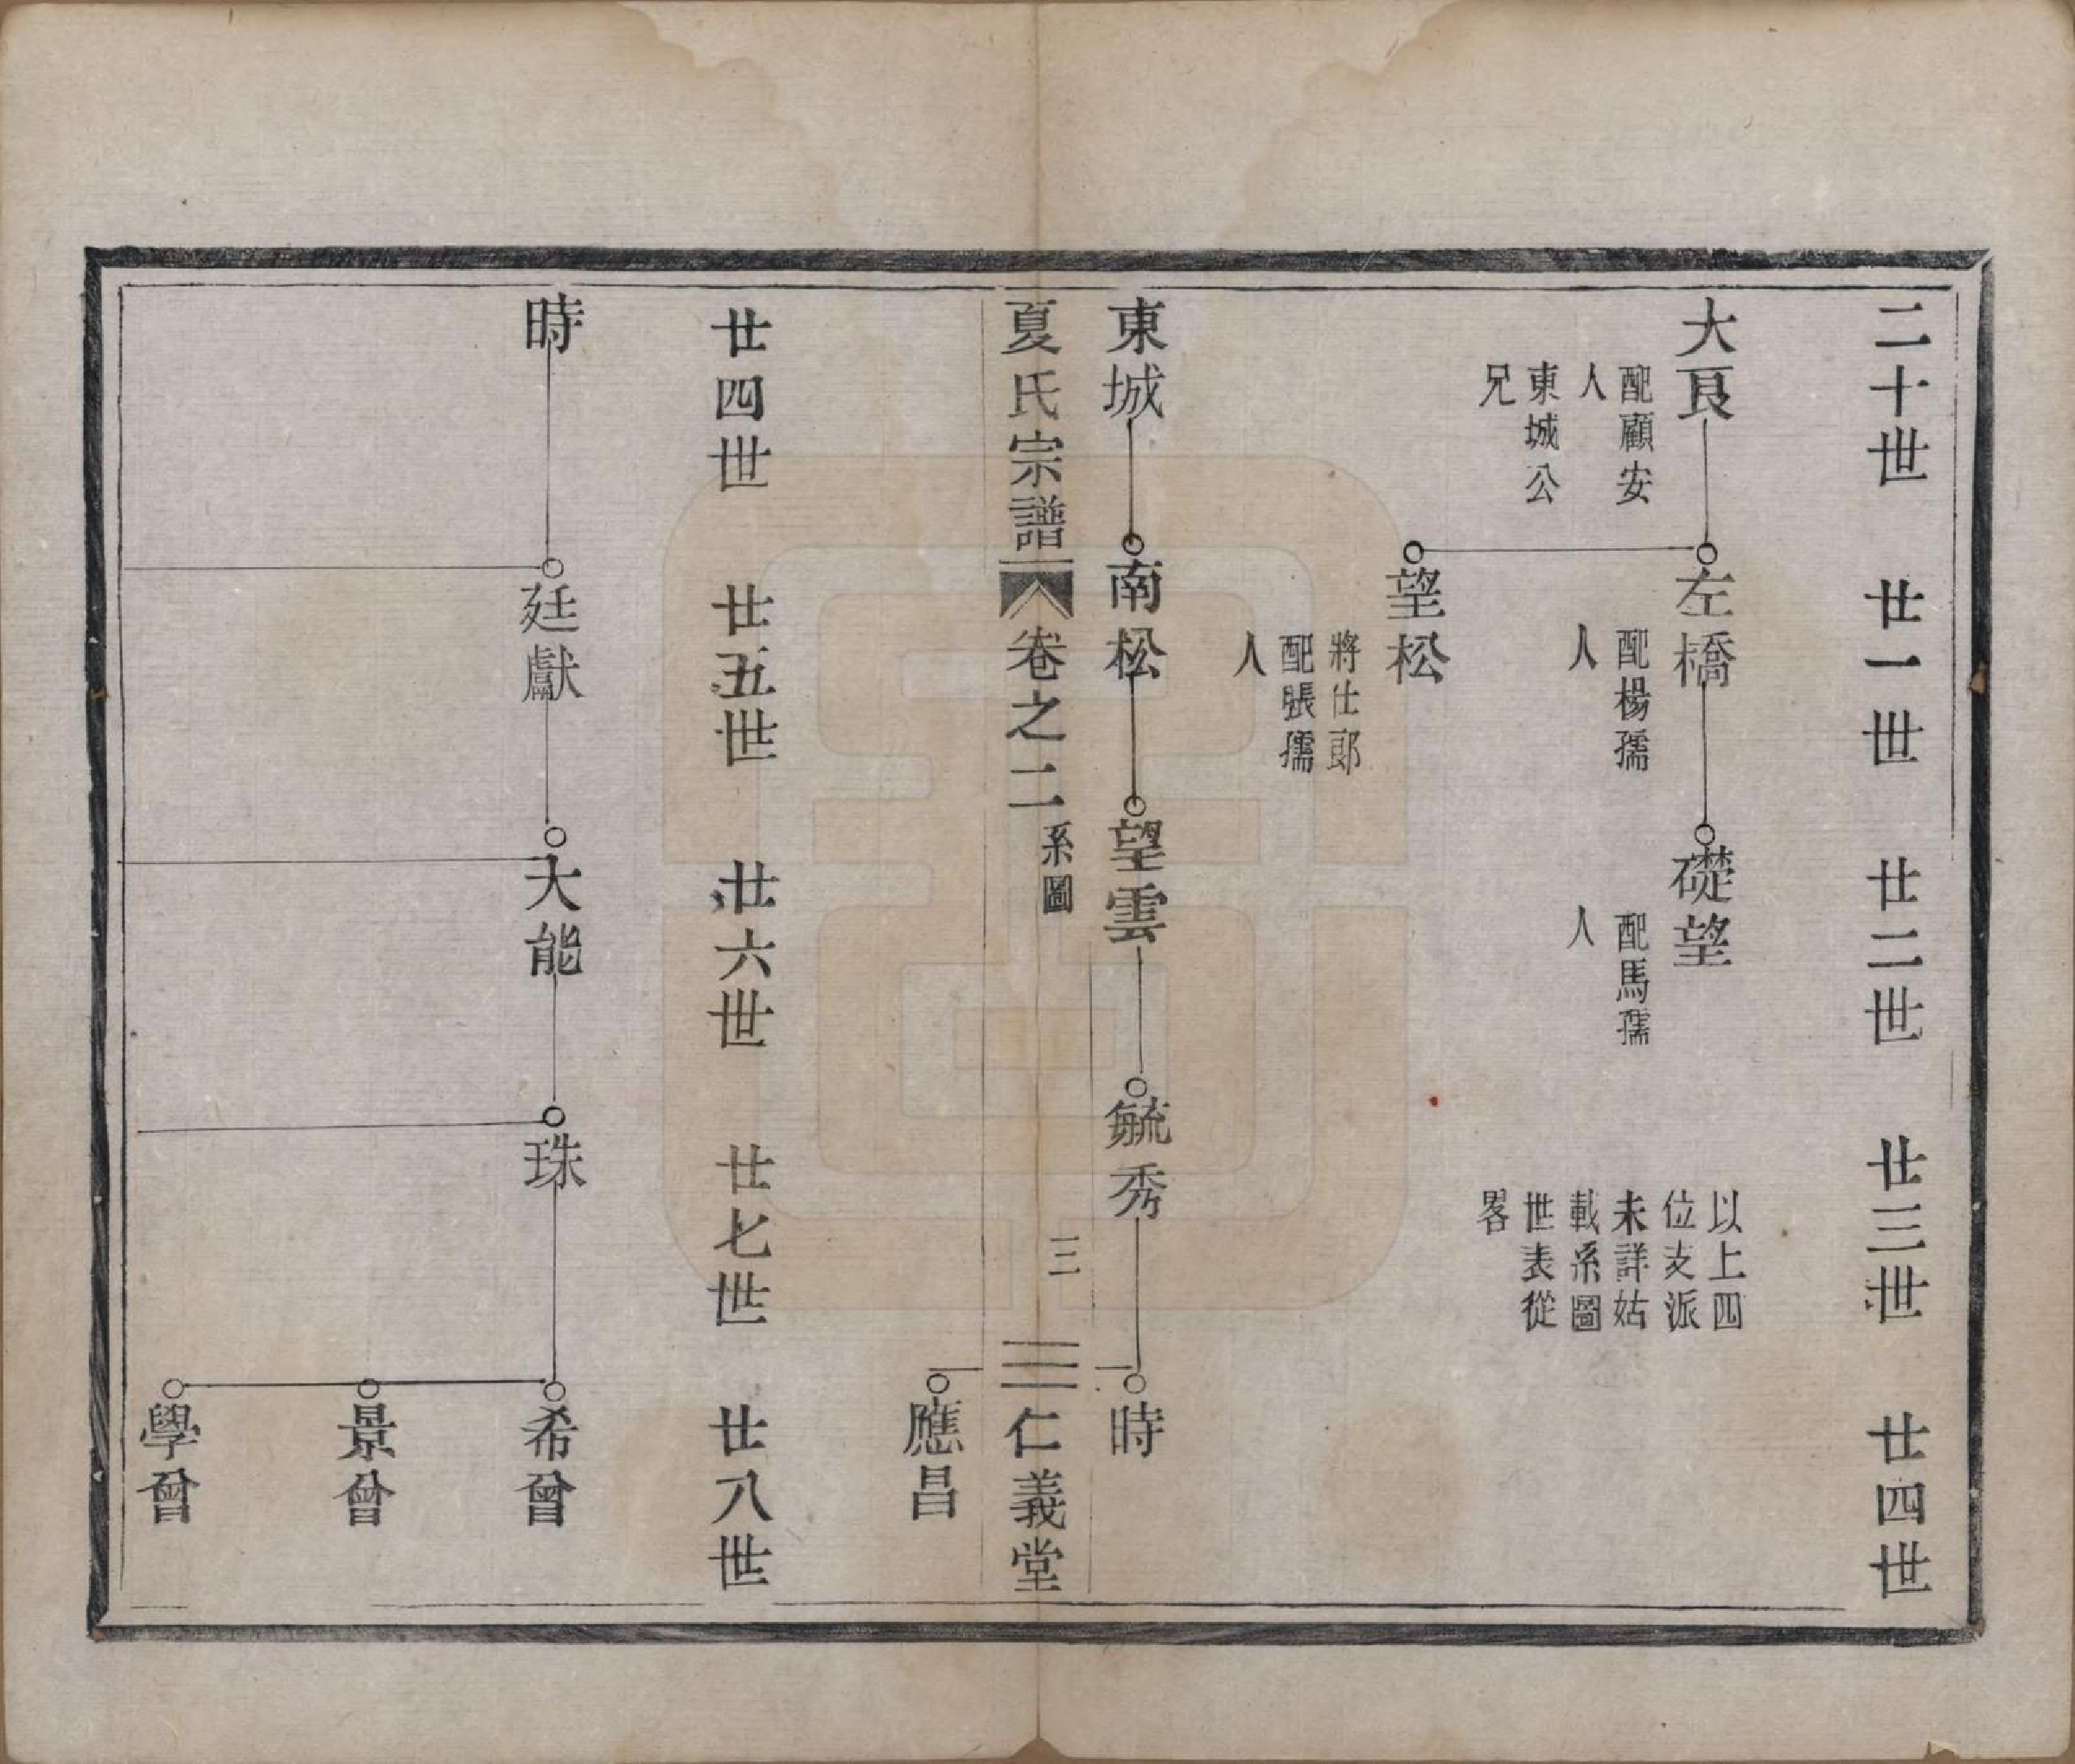 二十世　廿一世　廿二世　廿三世　廿四世
大良
配顧安
人
東城公
兄
左橋
配楊孺
人
礎望
配馬孺
人
以上四
位支派
未詳姑
載系圖
世表從
畧
望松
將仕郎
配張孺
人
東城　南松　望雲　毓秀　時
夏氏宗譜　卷之二　系圖　三　仁義堂
應昌
廿四世　廿五世　廿六世　廿七世　廿八世
時　廷獻　大能　珠　希曾
景曾
學曾